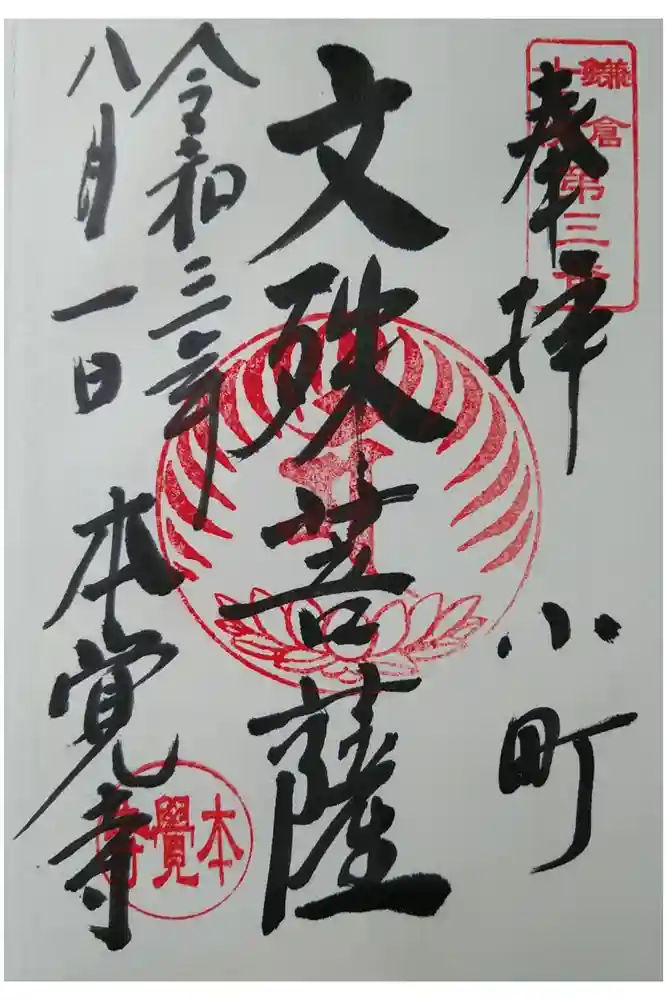 奉拝
小町
鎌倉
十三
第三番
文殊菩薩
令和三年
八月一日
本覚寺
本覺寺